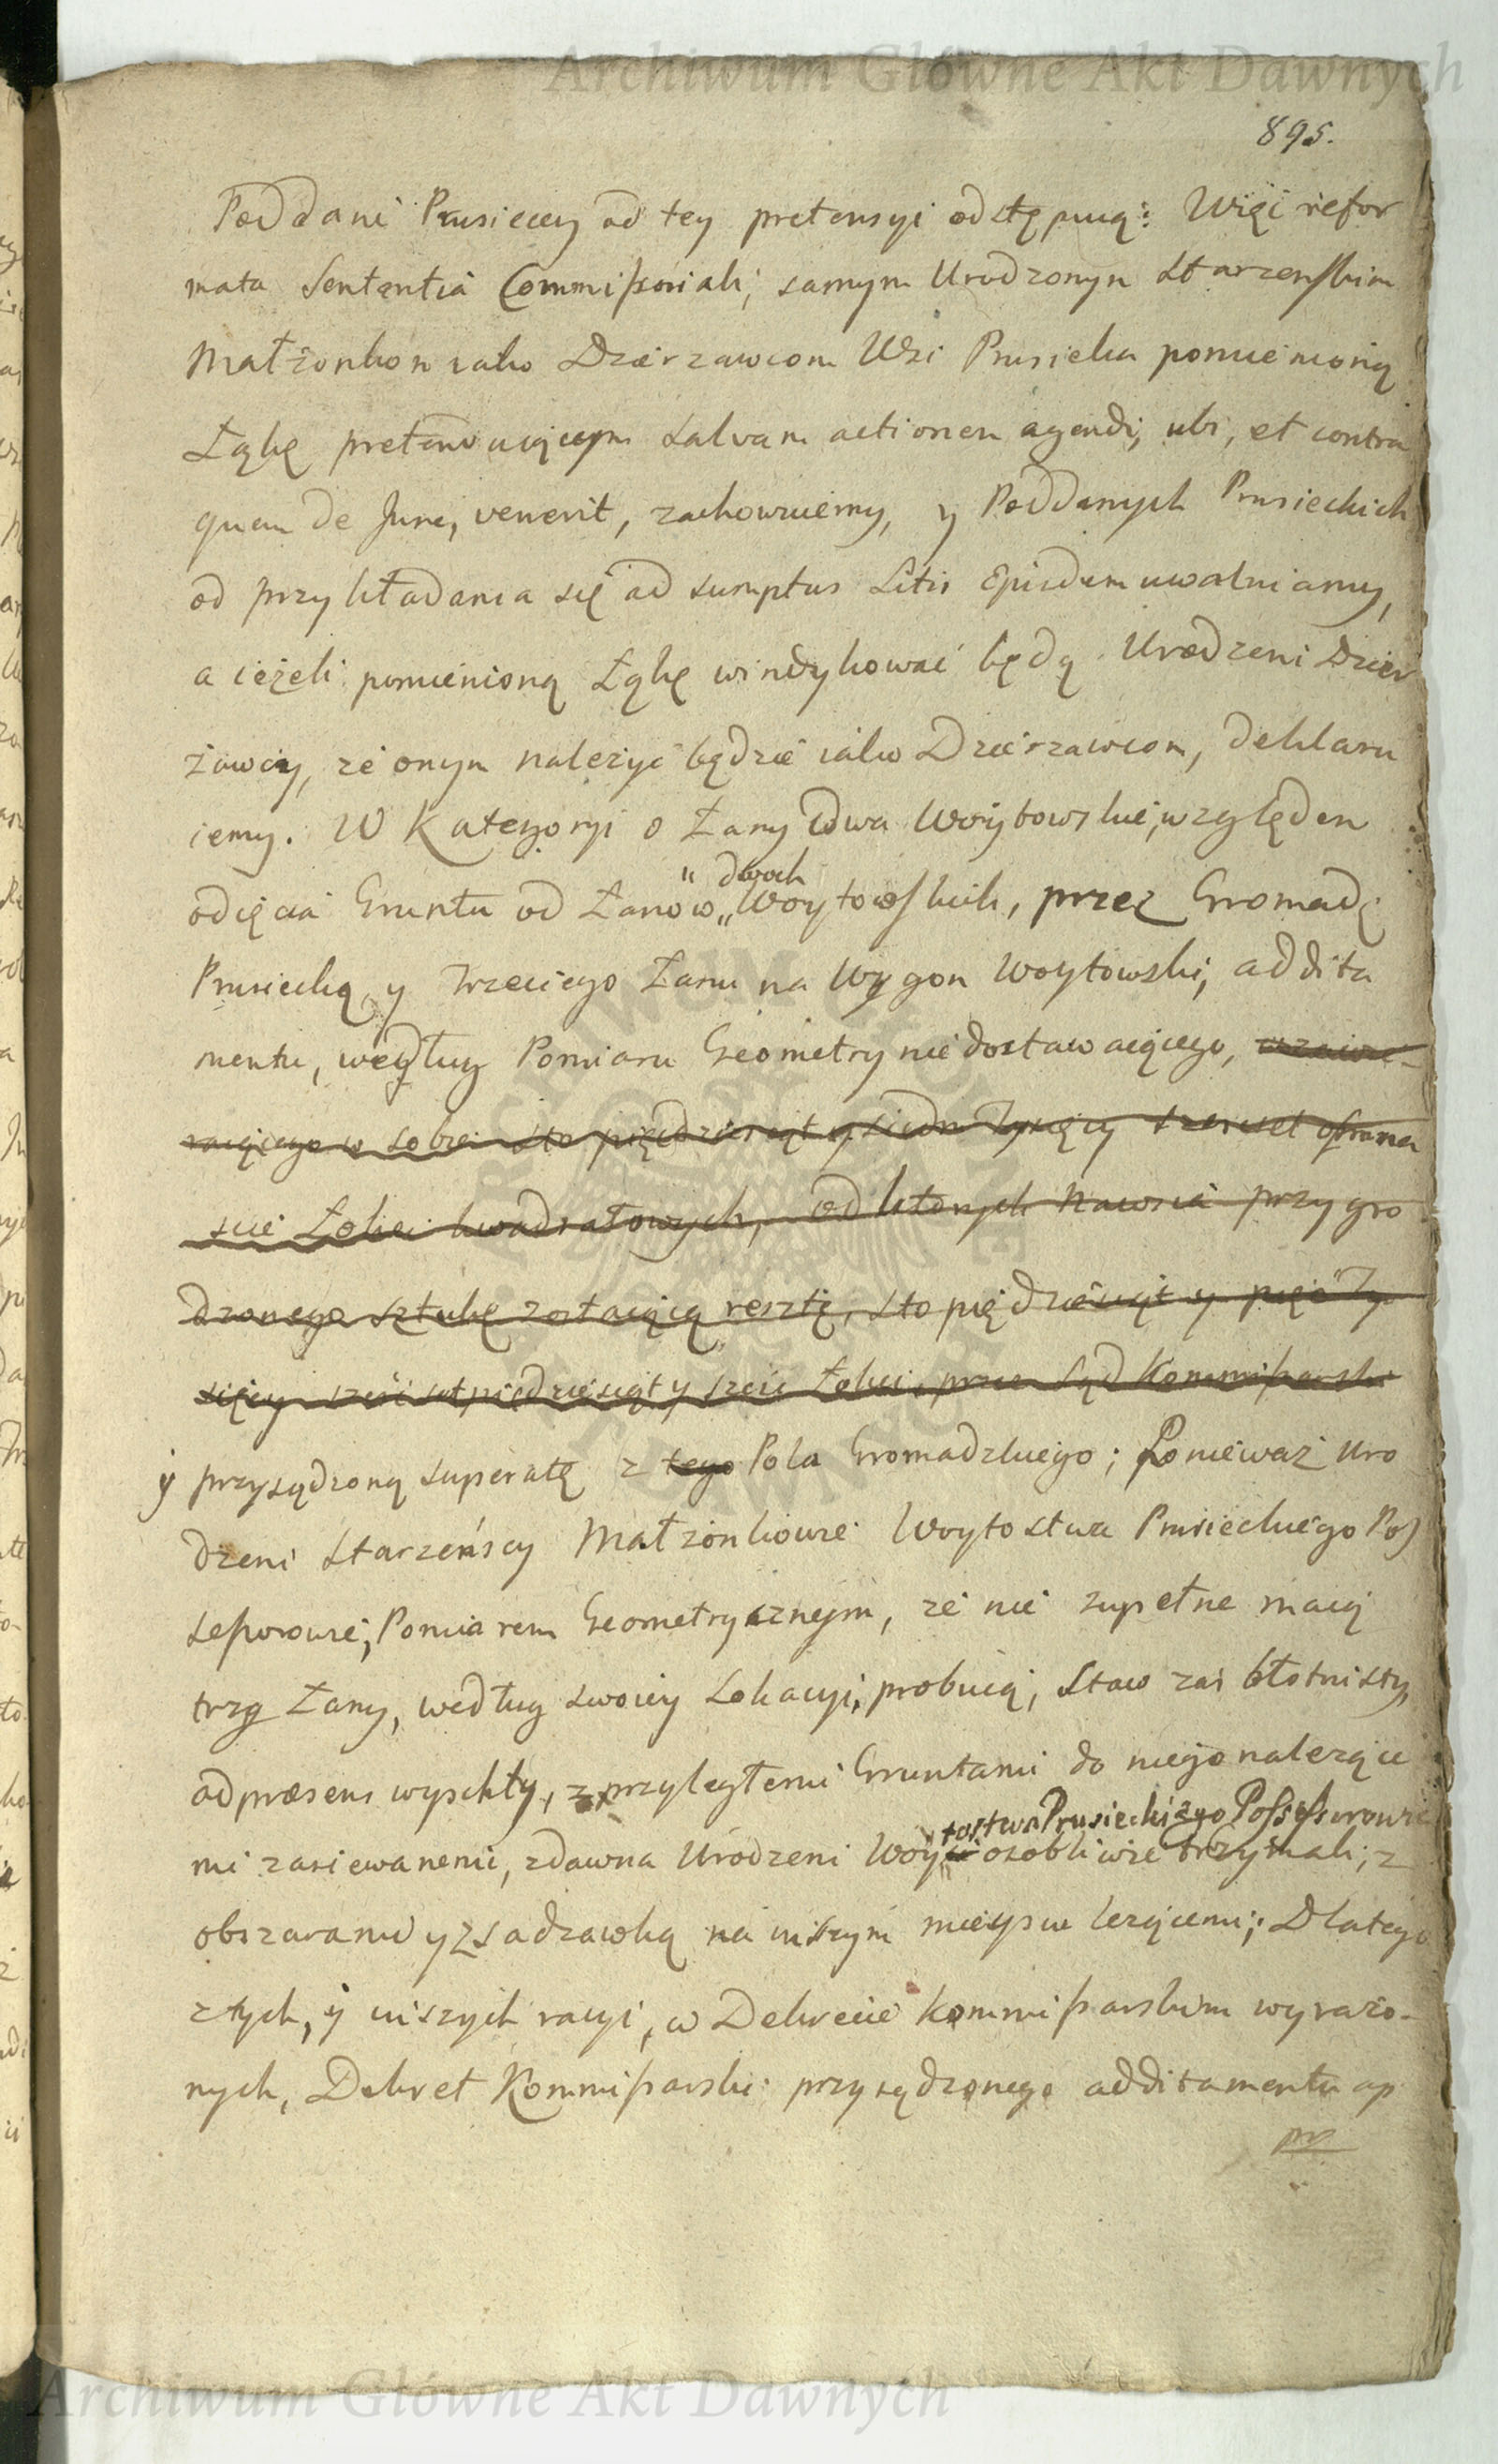 Archiwum Główne Akt Dawnych
895.
Poddani Prusieccy od tey pretensyi odstępuią: Więc refor
mata Sententia Commissoriali, samym Urodzonym Starzenskim
Małżonkom iako Dzierzawcom Wsi Prusieka pomienioną
Łąkę pretenduiącym salvam actionem agendi, ubi, et contra
quem de Jure, venerit, zachowuiemy, y Poddanych Prusieckich
od przykładania się ad sumptus Litis Ejusdem uwalniamy,
a ieżeli pomienioną Łąkę windykować będą Urodzeni Dzier
żawcy, że onym należyć będzie iako Dzierzawcom, deklaru
iemy. W Kategoryi o Łany dwa Woytowskie, względem
odięcia Gruntu od Łanow „ dwoch „ Woytowskich, przez Gromadę
Prusiecką y trzeciego Łanu na Wygon Woytowski, addita
mentu, według Pomiaru Geometry niedostawaiącego, zawie-
raiącego w sobie sto pięćdziesiąt y siedm Tysięcy szescset ośmna
scie Łokci kwadratowych, od ktorych Nawsia przygro
dzonego sztukę zostaiącą resztę, sto pięćdziesiąt y pięć Ty
sięcy sześćset pięćdziesiąt y sześć Łokci, przez Sąd Kommissarski
y przysądzoną superatę z tego Pola Gromadzkiego; Ponieważ Uro
dzeni Starzeńscy Małżonkowie Woytostwa Prusieckiego Pos
sessorowie, Pomiarem Geometrycznym, że nie zupełne maią
trzy Łany, według swoiey Lokacyi, probuią, Staw zaś błotnisty,
ad præsens wyschły, z przyległemi Gruntami do niego należące
mi zasiewanemi, zdawna Urodzeni Woytostwa Prusieckiego Possessorowie osobliwie trzymali, z
obszarami y z sadzawką na inszym mieyscu leżącemi; Dlatego
z tych, y inszych racyi, w Dekrecie Kommissarskim wyrażo-
nych, Dekret Kommissarski przysądzonego additamentu ap
pro
Archiwum Główne Akt Dawnych